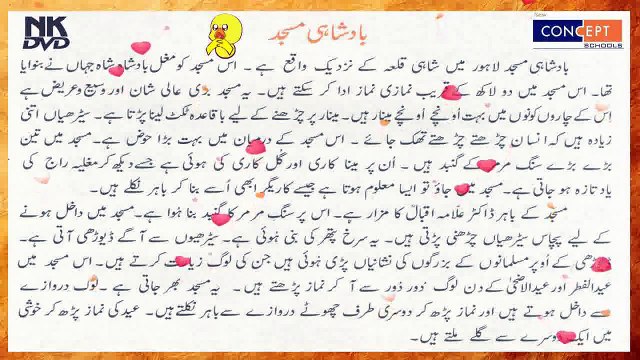 NK
DVD
بادشاہی مسجد
CONCEPT
SCHOOLS
بادشاہی مسجد لاہور میں شاہی قلعہ کے نزدیک واقع ہے۔ اس مسجد کو مغل بادشاہ شاہ جہاں نے بنوایا
تھا۔ اس مسجد میں دو لاکھ کے قریب نمازی نماز ادا کر سکتے ہیں۔ یہ مسجد بڑی عالی شان اور وسیع و عریض ہے
اس کے چاروں کونوں میں بہت اُونچے اُونچے مینار ہیں۔ مینار پر چڑھنے کے لیے باقاعدہ ٹکٹ لینا پڑتا ہے۔ سیڑھیاں اتنی
زیادہ ہیں کہ انسان چڑھتے چڑھتے تھک جائے۔ اس مسجد کے درمیان میں بہت بڑا حوض ہے۔ مسجد میں تین
بڑے بڑے سنگ مرمر کے گنبد ہیں۔ اُن پر مینا کاری اور گل کاری کی ہوئی ہے جسے دیکھ کر مغلیہ راج کی
یاد تازہ ہو جاتی ہے۔ مسجد میں جاؤ تو ایسا معلوم ہوتا ہے جیسے کاریگر ابھی اُسے بنا کر باہر نکلے ہیں۔
مسجد کے باہر ڈاکٹر علامہ اقبالؒ کا مزار ہے۔ اس پر سنگ مرمر کا گنبد بنا ہوا ہے۔ مسجد میں داخل ہونے
کے لیے پچاس سیڑھیاں چڑھنی پڑتی ہیں۔ یہ سرخ پتھر کی بنی ہوئی ہے۔ سیڑھیوں سے آگے ڈیوڑھی آتی ہے۔
ڈیوڑھی کے اُوپر مسلمانوں کے بزرگوں کی نشانیاں پڑی ہوئی ہیں جن کی لوگ زیارت کرتے ہیں۔ اس مسجد میں
عیدالفطر اور عیدالاضحیٰ کے دن لوگ دُور دُور سے آ کر نماز پڑھتے ہیں۔ یہ مسجد بھر جاتی ہے۔ لوگ دروازے
سے داخل ہوتے ہیں اور نماز پڑھ کر دوسری طرف چھوٹے دروازے سے باہر نکلتے ہیں۔ عید کی نماز پڑھ کر خوشی
میں ایک دوسرے سے گلے ملتے ہیں۔